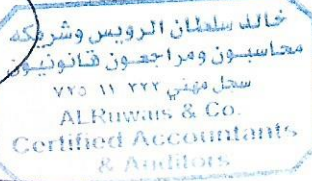 خالد سلطان الرويس وشريكه
محاسبون ومراجعون قانونيون
سجل مهني ٢٢٢ ١١ ٧٢٥
ALRuwais & Co.
Certified Accountants
& Auditors